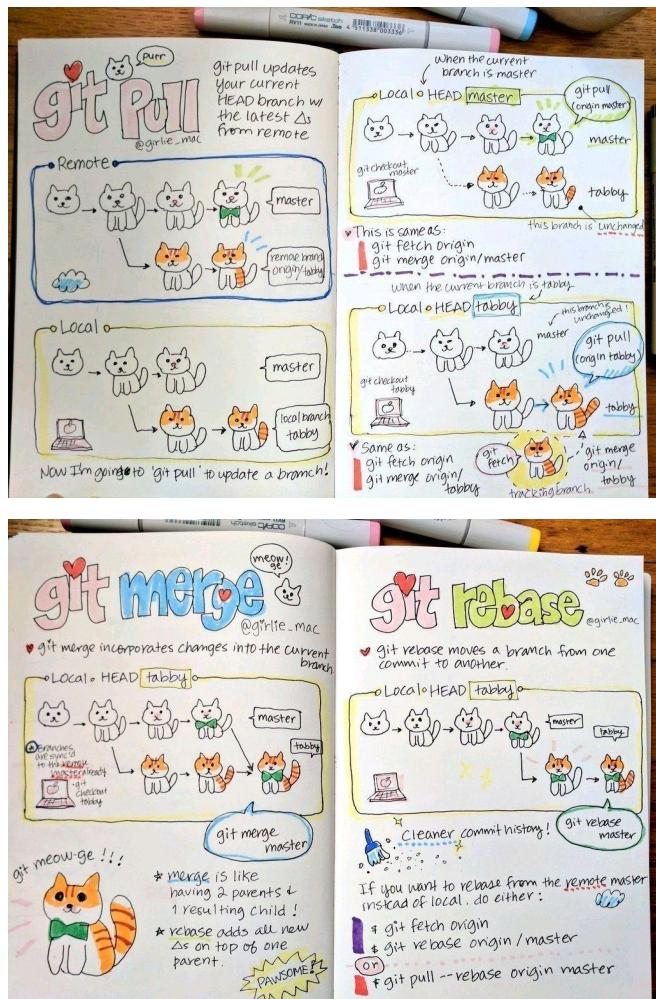 COPIC sketch
git Pull
purr
@girlie_mac
git pull updates
your current
HEAD branch w/
the latest Δs
from remote
Remote
master
remote branch
origin/tabby
Local
master
local branch
tabby
Now I'm going to 'git pull' to update a branch!
when the current
branch is master
Local HEAD master
git pull
(origin master)
master
git checkout
master
tabby
this branch is unchanged
This is same as:
git fetch origin
git merge origin/master
when the current branch is tabby
Local HEAD tabby
this branch is
unchanged!
master
git pull
(origin tabby)
git checkout
tabby
tabby
Same as:
git fetch origin
git merge origin/
tabby
git
fetch
git merge
origin/
tabby
tracking branch
git merge
meow!
ge
@girlie_mac
git merge incorporates changes into the current
branch.
Local HEAD tabby
master
tabby
Branches
are sync'd
to the remote
master already
git
checkout
tabby
git merge
master
git meow-ge !!!
* merge is like
having 2 parents &
1 resulting child!
* rebase adds all new
Δs on top of one
parent.
PAWSOME!
git rebase
@girlie_mac
git rebase moves a branch from one
commit to another.
Local HEAD tabby
master
tabby
git rebase
master
Cleaner commit history!
If you want to rebase from the remote master
instead of local, do either:
$ git fetch origin
$ git rebase origin/master
or
$ git pull --rebase origin master